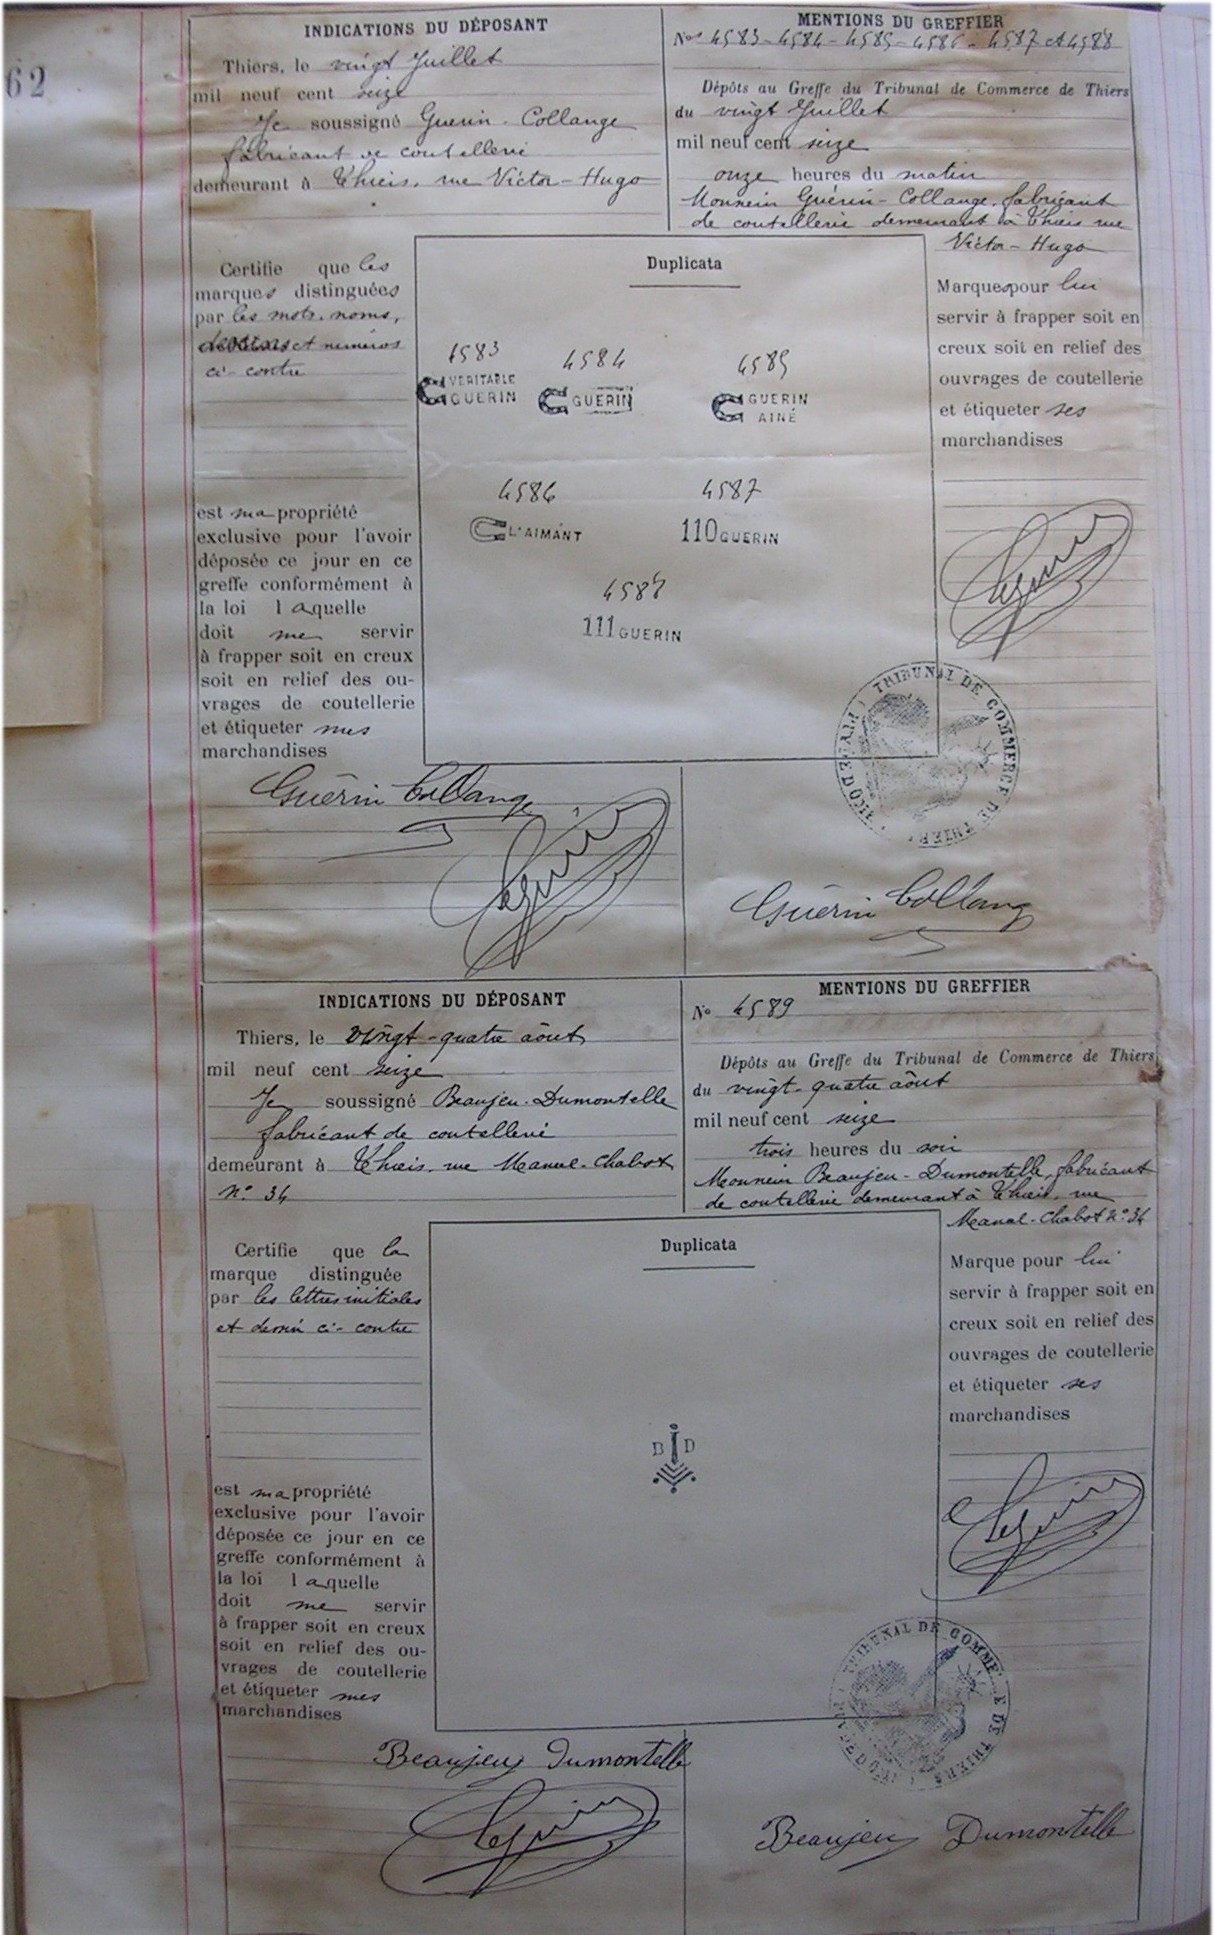 62
INDICATIONS DU DÉPOSANT
Thiers, le vingt Juillet
mil neuf cent seize
Je soussigné Guerin-Collange
fabricant de coutellerie
demeurant à Thiers, rue Victor-Hugo
MENTIONS DU GREFFIER
Nos 4583-4584-4585-4586-4587 et 4588
Dépôts au Greffe du Tribunal de Commerce de Thiers
du vingt Juillet
mil neuf cent seize
onze heures du matin
Monsieur Guérin-Collange, fabricant
de coutellerie demeurant à Thiers rue
Victor-Hugo
Certifie que les
marques distinguées
par les mots, noms,
et numéros
ci-contre
est ma propriété
exclusive pour l'avoir
déposée ce jour en ce
greffe conformément à
la loi laquelle
doit me servir
à frapper soit en creux
soit en relief des ou-
vrages de coutellerie
et étiqueter mes
marchandises
Duplicata
4583
VERITABLE
GUERIN
4584
GUERIN
4585
GUERIN
AINÉ
4586
L'AIMANT
4587
110 GUERIN
4588
111 GUERIN
Marques pour lui
servir à frapper soit en
creux soit en relief des
ouvrages de coutellerie
et étiqueter ses
marchandises
TRIBUNAL DE COMMERCE DE THIERS
Guérin Collange
Guérin Collang
INDICATIONS DU DÉPOSANT
Thiers, le vingt-quatre août
mil neuf cent seize
Je soussigné Beaujeu-Dumontelle
fabricant de coutellerie
demeurant à Thiers, rue Manuel-Chabot
n° 34
MENTIONS DU GREFFIER
No 4589
Dépôts au Greffe du Tribunal de Commerce de Thiers
du vingt-quatre août
mil neuf cent seize
trois heures du soir
Monsieur Beaujeu-Dumontelle, fabricant
de coutellerie demeurant à Thiers, rue
Manuel-Chabot n° 34
Certifie que la
marque distinguée
par les lettres initiales
et dessin ci-contre
est ma propriété
exclusive pour l'avoir
déposée ce jour en ce
greffe conformément à
la loi laquelle
doit me servir
à frapper soit en creux
soit en relief des ou-
vrages de coutellerie
et étiqueter mes
marchandises
Duplicata
B D
Marque pour lui
servir à frapper soit en
creux soit en relief des
ouvrages de coutellerie
et étiqueter ses
marchandises
TRIBUNAL DE COMMERCE DE THIERS
Beaujeu Dumontelle
Beaujeu Dumontelle